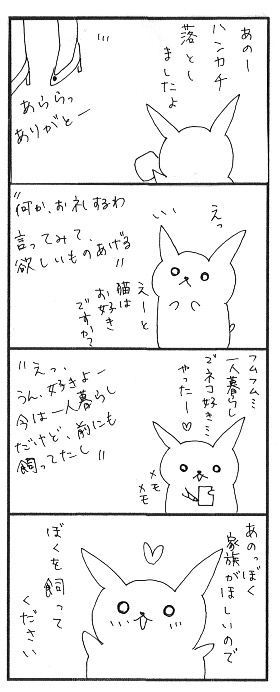 あのー
ハンカチ
落とし
ましたよ
あららっ
ありがとー
えっ
いい
"何か、お礼するわ
言ってみて、
欲しいものあげる"
えーと
猫は
お好き
ですか?
フムフム…
一人暮らし
でネコ好き…
やったー♡
メモ
メモ
"えっ、
うん、好きよー
今は一人暮らし
だけど、前にも
飼ってたし"
あのっぼく
家族がほしいので
ぼくを飼って
ください